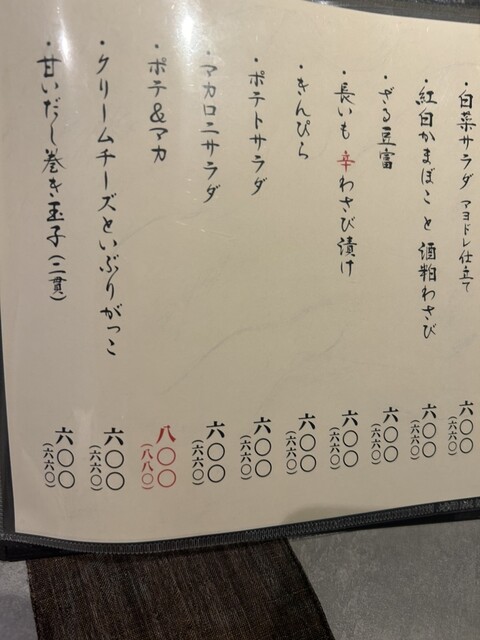 ・白菜サラダ マヨドレ仕立て 六〇〇 (六六〇)
・紅白かまぼこと酒粕わさび 六〇〇 (六六〇)
・ざる豆富 六〇〇 (六六〇)
・長いも辛わさび漬け 六〇〇 (六六〇)
・きんぴら 六〇〇 (六六〇)
・ポテトサラダ 六〇〇 (六六〇)
・マカロニサラダ 六〇〇 (六六〇)
・ポテ&マカ 八〇〇 (八八〇)
・クリームチーズといぶりがっこ 六〇〇 (六六〇)
・甘いだし巻き玉子(二貫) 六〇〇 (六六〇)